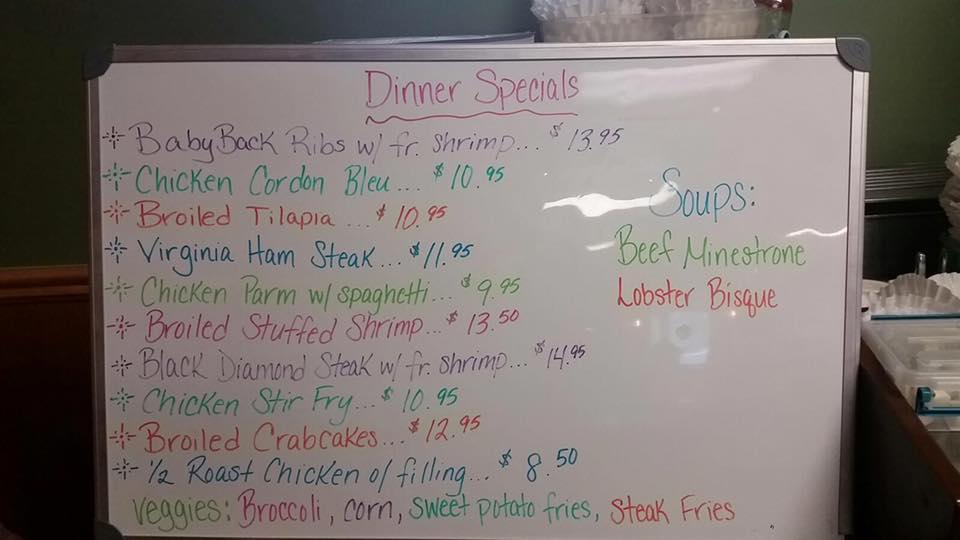 Dinner Specials
BabyBack Ribs w/ fr. shrimp... $13.95
Chicken Cordon Bleu... $10.95
Broiled Tilapia... $10.95
Virginia Ham Steak... $11.95
Chicken Parm w/ spaghetti... $9.95
Broiled Stuffed Shrimp... $13.50
Black Diamond Steak w/ fr. shrimp... $14.95
Chicken Stir Fry... $10.95
Broiled Crabcakes... $12.95
1/2 Roast Chicken o/ filling... $8.50
Veggies: Broccoli, corn, sweet potato fries, Steak Fries
Soups:
Beef Minestrone
Lobster Bisque